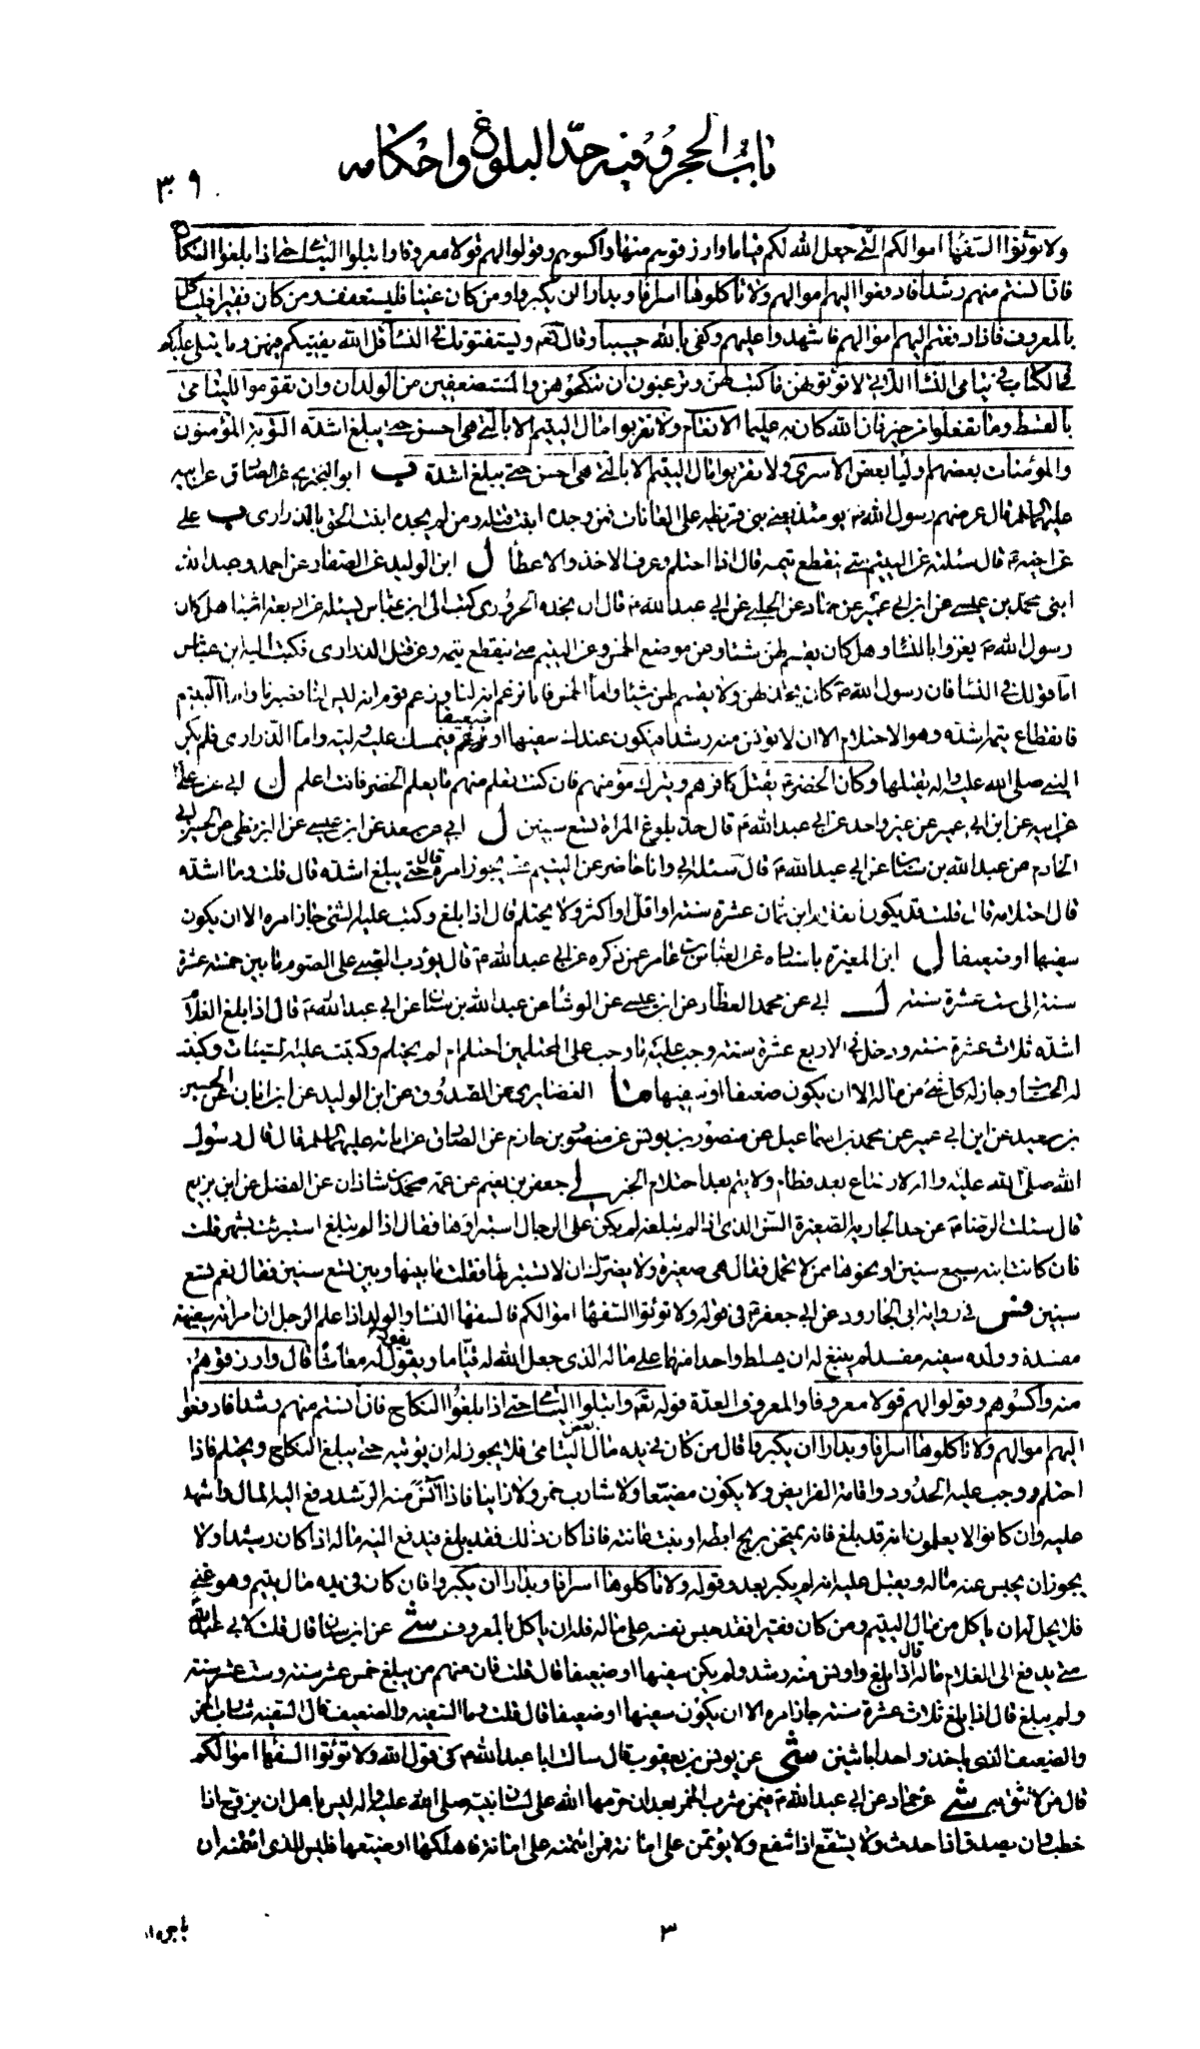 باب الحجر وفيه حدّ البلوغ واحكامه
٣٠٩
ولا تؤتوا السفهاء اموالكم التي جعل الله لكم قياما وارزقوهم فيها واكسوهم وقولوا لهم قولا معروفا وابتلوا اليتامى حتى اذا بلغوا النكاح
فان انستم منهم رشدا فادفعوا اليهم اموالهم ولا تاكلوها اسرافا وبدارا ان يكبروا ومن كان غنيا فليستعفف ومن كان فقيرا فلياكل
بالمعروف فاذا دفعتم اليهم اموالهم فاشهدوا عليهم وكفى بالله حسيبا وقال تعم ويستفتونك في النساء قل الله يفتيكم فيهن وما يتلى عليكم
في الكتاب في يتامى النساء اللاتي لا تؤتونهن ما كتب لهن وترغبون ان تنكحوهن والمستضعفين من الولدان وان تقوموا لليتامى
بالقسط وما تفعلوا من خير فان الله كان به عليما الانعام ولا تقربوا مال اليتيم الا بالتي هي احسن حتى يبلغ اشده التوبة المؤمنون
والمؤمنات بعضهم اولياء بعض الاسرى ولا تقربوا مال اليتيم الا بالتي هي احسن حتى يبلغ اشده ب ابو البختري عن الصادق عن ابيه
عليهما السلم قال عرضهم رسول الله ص يومئذ يعني بني قريظة على العانات فمن وجده انبت قتله ومن لم يجده انبت الحقه بالذراري ب علي
عن اخيه ع قال سئلته عن اليتيم متى ينقطع يتمه قال اذا احتلم وعرف الاخذ والاعطاء ل ابن الوليد عن الصفار عن احمد وعبد الله
ابني محمد بن عيسى عن ابن ابي عمير عن حماد عن الحلبي عن ابي عبد الله ع قال ان نجده الحروري كتب الى ابن عباس يسئله عن اربعة اشياء هل كان
رسول الله ص يغزوا بالنساء وهل كان يقسم لهن شيئا وعن موضع الخمس وعن اليتيم متى ينقطع يتمه وعن قتل الذراري فكتب اليه ابن عباس
اما قولك في النساء فان رسول الله ص كان يحذيهن ولا يقسم لهن شيئا واما الخمس فانا نزعم انه لنا وزعم قوم انه ليس لنا فصبرنا واما اليتيم
فانقطاع يتمه اشده وهو الاحتلام الا ان لا تؤنس منه رشدا فيكون عندك سفيها او ضعيفا فيمسك عليه وليه واما الذراري فلم يكن
النبي صلى الله عليه واله يقتلها وكان الخضر ع يقتل كافرهم ويترك مؤمنهم فان كنت تعلم منهم ما يعلم الخضر فانت اعلم ل ابي عن علي
عن ابيه عن ابن ابي عمير عن غير واحد عن ابي عبد الله ع قال حد بلوغ المراة تسع سنين ل ابي عن سعد عن ابن عيسى عن البزنطي عن ابي الحسين
الخادم عن عبد الله بن سنان عن ابي عبد الله ع قال سئله ابي وانا حاضر عن اليتيم متى يجوز امره قال حتى يبلغ اشده قال قلت وما اشده
قال احتلامه قال قلت قد يكون الغلام ابن ثمان عشرة سنة او اقل او اكثر ولا يحتلم قال اذا بلغ وكتب عليه الشئ جاز امره الا ان يكون
سفيها او ضعيفا ل ابن المغيرة باسناده عن العباس بن عامر عمن ذكره عن ابي عبد الله ع قال يؤدب الصبي على الصوم ما بين خمسة عشرة
سنة الى ست عشرة سنة ل ابي عن محمد العطار عن ابن عيسى عن الوشاء عن عبد الله بن سنان عن ابي عبد الله ع قال اذا بلغ الغلام
اشده ثلاث عشرة سنة ودخل في الاربع عشرة سنة وجب عليه ما وجب على المحتلمين احتلم ام لم يحتلم وكتبت عليه السيئات وكتبت
له الحسنات وجاز له كل شئ من ماله الا ان يكون ضعيفا او سفيها ما الغضايري عن الصدوق عن ابن الوليد عن ابن ابان عن الحسين
بن سعيد عن ابن ابي عمير عن محمد بن اسماعيل عن منصور بن يونس عن منصور بن حازم عن الصادق عن ابائه عليهم السلم قال قال رسول
الله صلى الله عليه واله لا رضاع بعد فطام ولا يتم بعد احتلام الخبر في جعفر بن نعيم عن عمه محمد بن شاذان عن الفضل عن ابن بزيع
قال سئلت الرضا ع عن حد الجارية الصغيرة السن الذي اذا لم تبلغه لم يكن على الرجل استبراؤها فقال اذا لم تبلغ استبرئت بشهر قلت
فان كانت ابنة سبع سنين او نحوها ممن لا تحمل فقال هي صغيرة ولا يضرك ان لا تستبرئها فقلت ما بينها وبين تسع سنين فقال نعم تسع
سنين فس في رواية ابي الجارود عن ابي جعفر ع في قوله ولا تؤتوا السفهاء اموالكم فالسفهاء النساء والولد اذا علم الرجل ان امراته سفيهة
مفسدة وولده سفيه مفسد لم ينبغ له ان يسلط واحدا منهما على ماله الذي جعل الله له قياما يقول له معاشا قال وارزقوهم
منه واكسوهم وقولوا لهم قولا معروفا والمعروف العدة قوله تعم وابتلوا اليتامى حتى اذا بلغوا النكاح فان انستم منهم رشدا فادفعوا
اليهم اموالهم ولا تاكلوها اسرافا وبدارا ان يكبروا قال من كان في يده مال بعض اليتامى فلا يجوز له ان يؤتيه حتى يبلغ النكاح ويحتلم فاذا
احتلم ووجب عليه الحدود واقامة الفرايض ولا يكون مضيعا ولا شارب خمر ولا زانيا فاذا آنس منه الرشد دفع اليه المال واشهد
عليه وان كانوا لا يعلمون انه قد بلغ فانه يمتحن بريح ابطه او نبت عانته فاذا كان ذلك فقد بلغ فيدفع اليه ماله اذا كان رشيدا ولا
يجوز ان يحبس عنه ماله ويعتل عليه انه لم يكبر بعد وقوله ولا تاكلوها اسرافا وبدارا ان يكبروا فان كان في يده مال يتيم وهو غني
فلا يحل له ان ياكل من مال اليتيم ومن كان فقيرا فقد حبس نفسه على ماله فله ان ياكل بالمعروف شي عن ابن سنان قال قلت لابي عبد الله ع
متى يدفع الى الغلام ماله قال اذا بلغ واونس منه رشد ولم يكن سفيها او ضعيفا قال قلت فان منهم من يبلغ خمس عشر سنة وست عشر سنة
ولم يبلغ قال اذا بلغ ثلاث عشرة سنة جاز امره الا ان يكون سفيها او ضعيفا قال قلت وما السفيه والضعيف قال السفيه شارب الخمر
والضعيف الذي ياخذ واحدا باثنين شي عن يونس بن يعقوب قال سالت ابا عبد الله ع في قول الله ولا تؤتوا السفهاء اموالكم
قال من لا تثق به شي عن حماد عن ابي عبد الله ع فيمن شرب الخمر بعد ان حرمها الله على لسان نبيه صلى الله عليه واله ليس باهل ان يزوج اذا
خطب وان يصدق اذا حدث ولا يشفع اذا شفع ولا يؤتمن على امانة فمن ائتمنه على امانة فاهلكها او ضيعها فليس للذي ائتمنه ان
٣